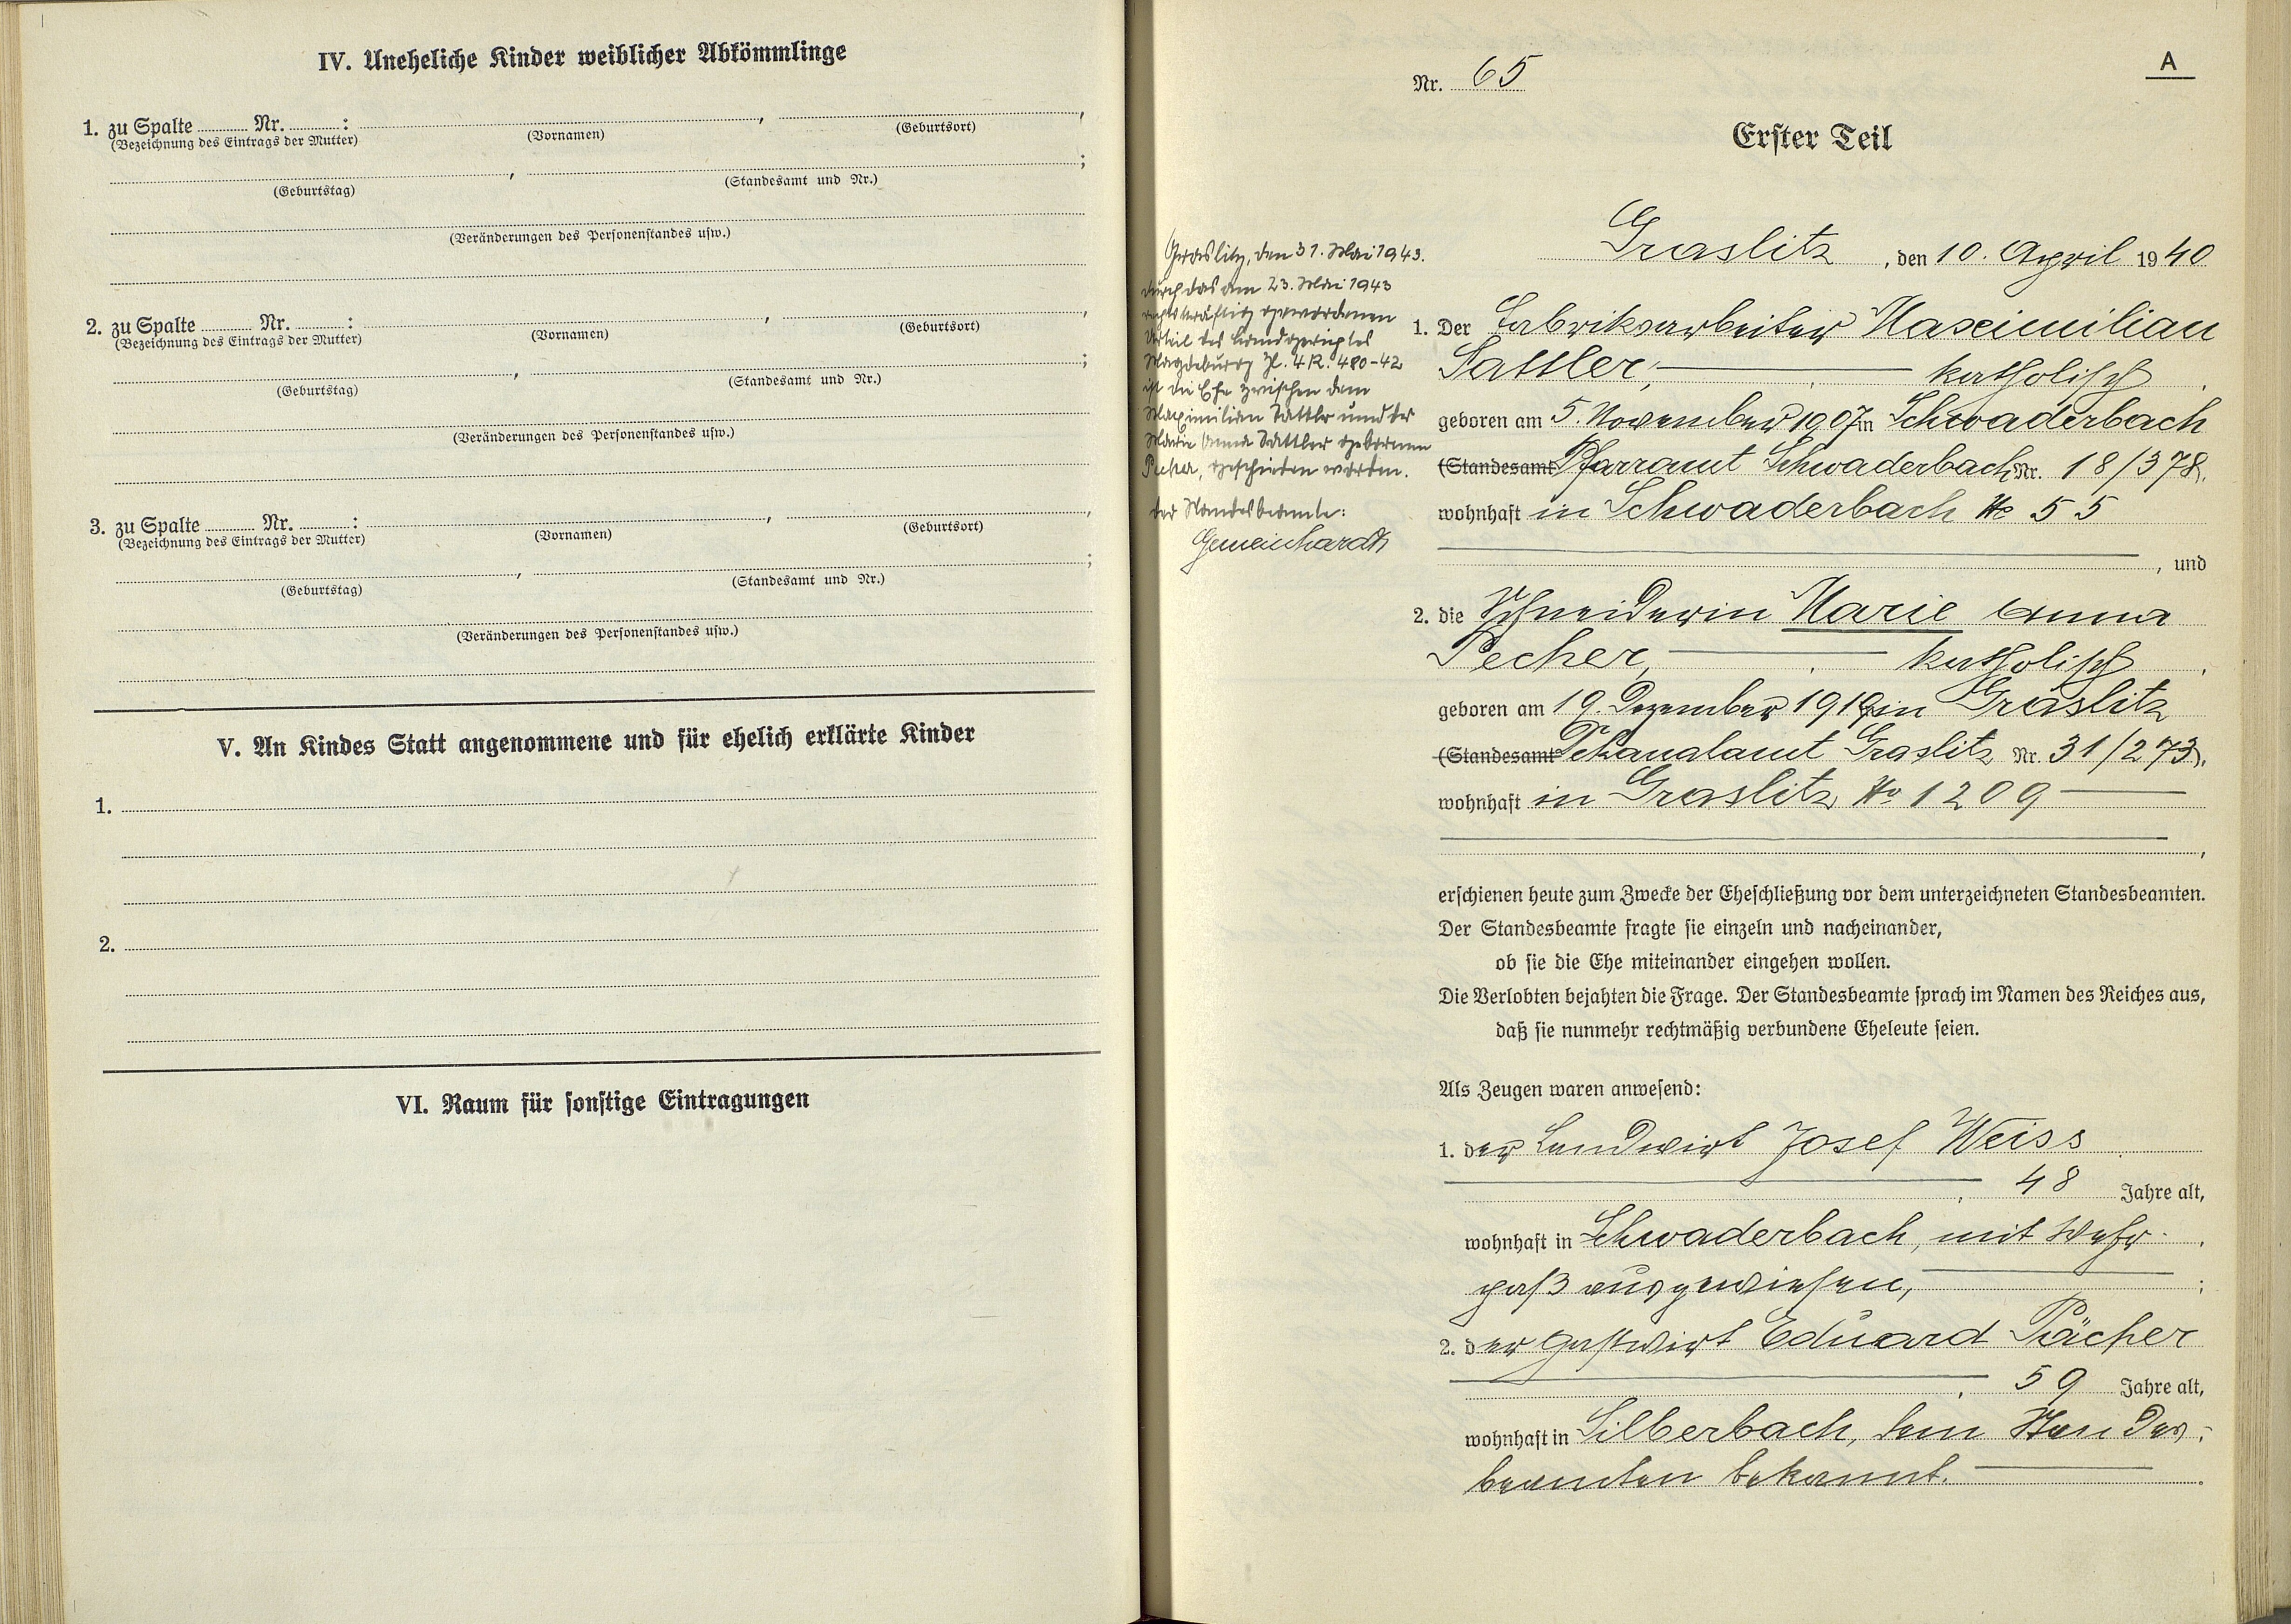 IV. Uneheliche Kinder weiblicher Abkömmlinge
1. zu Spalte Nr. : , ,
(Bezeichnung des Eintrags der Mutter) (Vornamen) (Geburtsort)
, ;
(Geburtstag) (Standesamt und Nr.)
(Veränderungen des Personenstandes usw.)
2. zu Spalte Nr. : , ,
(Bezeichnung des Eintrags der Mutter) (Vornamen) (Geburtsort)
, ;
(Geburtstag) (Standesamt und Nr.)
(Veränderungen des Personenstandes usw.)
3. zu Spalte Nr. : , ,
(Bezeichnung des Eintrags der Mutter) (Vornamen) (Geburtsort)
, ;
(Geburtstag) (Standesamt und Nr.)
(Veränderungen des Personenstandes usw.)
V. An Kindes Statt angenommene und für ehelich erklärte Kinder
1.
2.
VI. Raum für sonstige Eintragungen
A
Nr. 65
Erster Teil
Graslitz, den 10. April 1940
1. Der Fabriksarbeiter Maximilian
Sattler, katholisch,
geboren am 5. November 1907 in Schwaderbach
(Standesamt Pfarramt Schwaderbach Nr. 18/378),
wohnhaft in Schwaderbach No 55
, und
2. die Schneiderin Marie Anna
Pecher, katholisch,
geboren am 19. Dezember 1919 in Graslitz
(Standesamt Dekanalamt Graslitz Nr. 31/273),
wohnhaft in Graslitz No 1209
,
erschienen heute zum Zwecke der Eheschließung vor dem unterzeichneten Standesbeamten.
Der Standesbeamte fragte sie einzeln und nacheinander,
ob sie die Ehe miteinander eingehen wollen.
Die Verlobten bejahten die Frage. Der Standesbeamte sprach im Namen des Reiches aus,
daß sie nunmehr rechtmäßig verbundene Eheleute seien.
Als Zeugen waren anwesend:
1. der Landwirt Josef Weiss
, 48 Jahre alt,
wohnhaft in Schwaderbach, mit Wehr-
paß ausgewiesen, ;
2. der Gastwirt Eduard Pächer
, 59 Jahre alt,
wohnhaft in Silberbach, dem Standes-
beamten bekannt.
Graslitz, den 31. Mai 1943.
Durch das am 23. Mai 1943
rechtskräftig gewordenen
Urteil des Landgerichtes
Magdeburg Zl. 4 R. 480-42
ist die Ehe zwischen dem
Maximilian Sattler und der
Marie Anna Sattler geborenen
Pecher, geschieden worden.
Der Standesbeamte:
Gemeinhardt